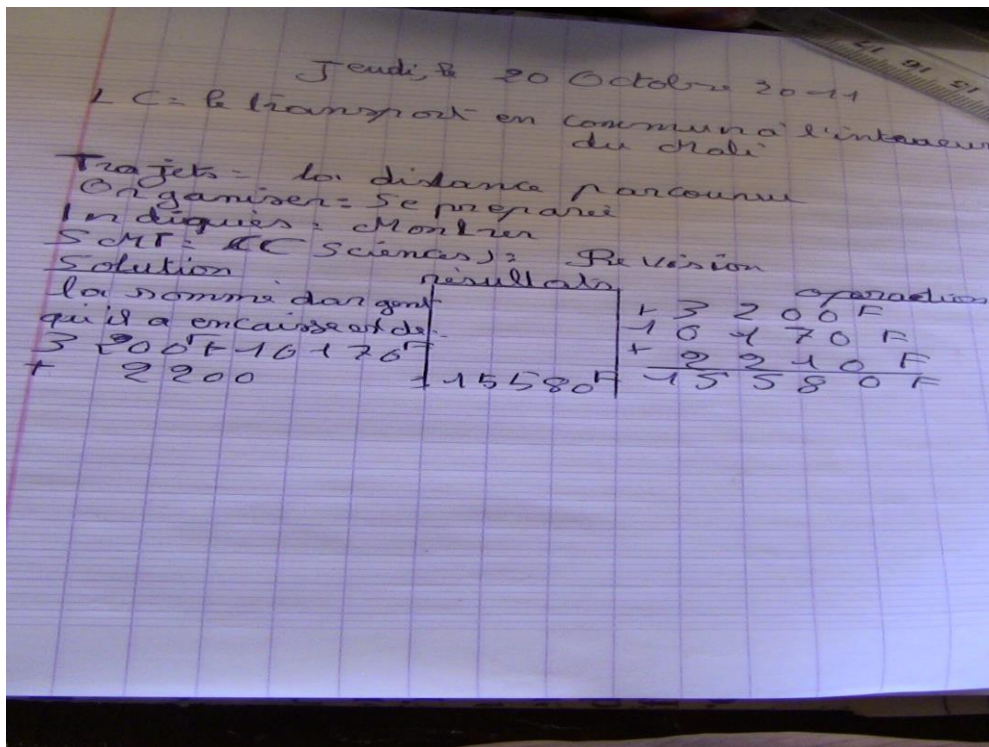 Jeudi, le 20 Octobre 2011
LC = le transport en commun à l'interieur
du Mali
Trajets = la distance parcourue
Organiser = Se preparer
Indiquès = Montrer
SCMT = (C Sciences) = Revision
Solution résultats operaction
la somme dargent
qu'il a encaisse est de
3 200F + 10 170F
+ 2200
= 15580F
+ 3 200F
10 170 F
+ 2 210 F
15 580 F
15 16 17